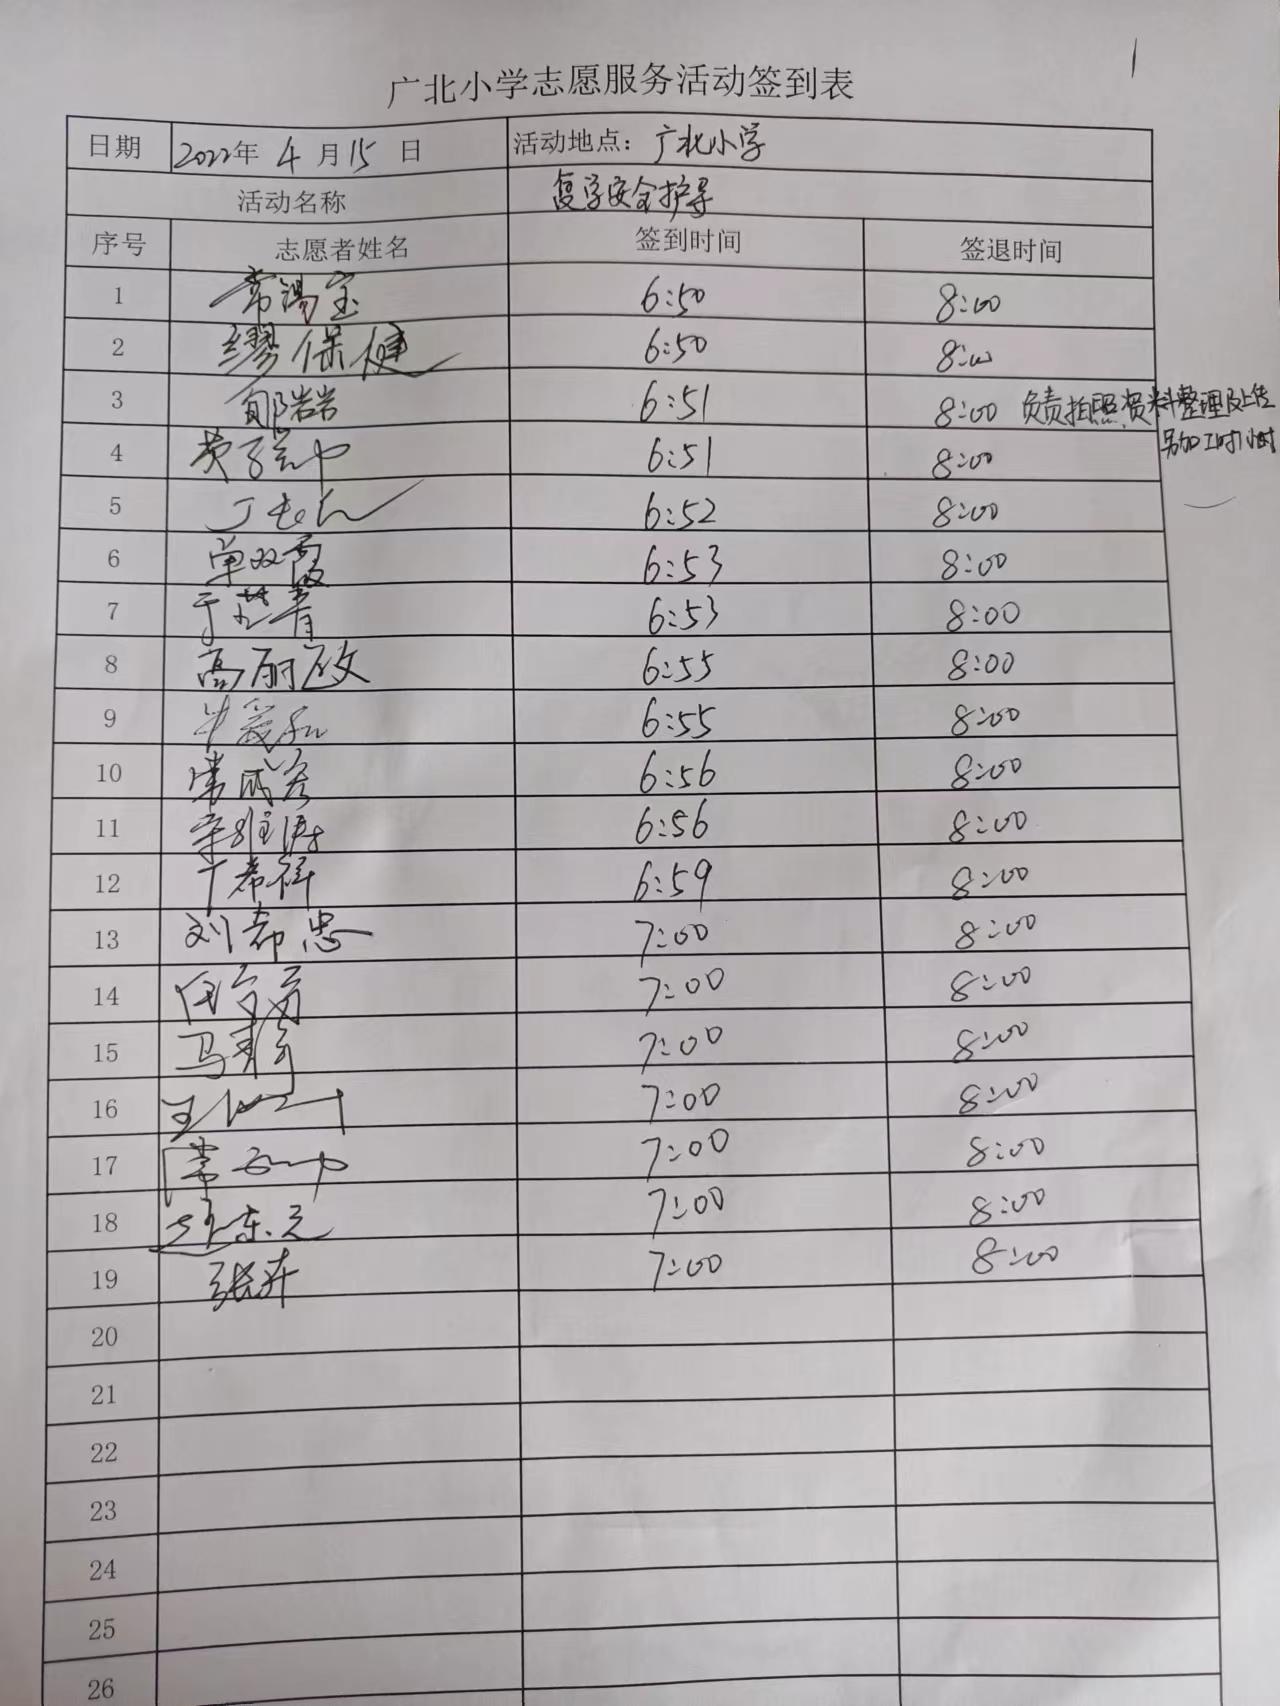 1
广北小学志愿服务活动签到表
日期 2022年 4月15日 活动地点：广北小学
活动名称 复学安全护导
序号 志愿者姓名 签到时间 签退时间
1 常锡宝 6:50 8:00
2 缪保健 6:50 8:00
3 郇岩岩 6:51 8:00 负责拍照、资料整理及上传
另加工时1小时
4 6:51 8:00
5 6:52 8:00
6 单双霞 6:53 8:00
7 于芝青 6:53 8:00
8 高丽政 6:55 8:00
9 6:55 8:00
10 常成岩 6:56 8:00
11 6:56 8:00
12 丁希祥 6:59 8:00
13 刘希忠 7:00 8:00
14 7:00 8:00
15 7:00 8:00
16 7:00 8:00
17 7:00 8:00
18 赵东元 7:00 8:00
19 张卉 7:00 8:00
20
21
22
23
24
25
26